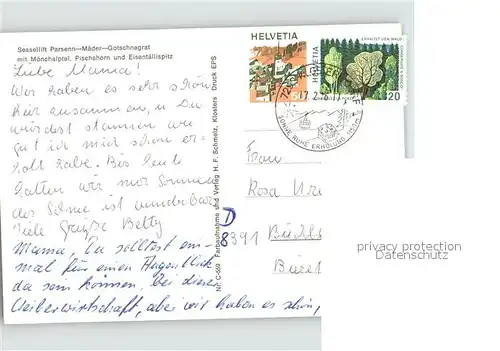 Sessellift Parsenn—Mäder—Gotschnagrat
mit Mönchalptal, Pischahorn und Eisentällispitz
Liebe Mama!
Wir haben es sehr schön
hier zusammen, u Du
würdest staunen wie
gut ich mich schon er-
holt habe. Bis heute
hatten wir nur Sonne
der Schnee ist wunderbar
Viele Grüße Betty
Mama, Du solltest ein-
mal für einen Augenblick
da sein können, bei dieser
Weiberwirtschaft, aber wir haben es schön,
Nr. C-569 Farbaufnahme und Verlag H. F. Schmelz, Klosters Druck EPS
HELVETIA
50+
HELVETIA
ERHALTET DEN WALD
20
SONNE RUHE ERHOLUNG
Frau
Rosa
D
8391
privacy protection
Datenschutz